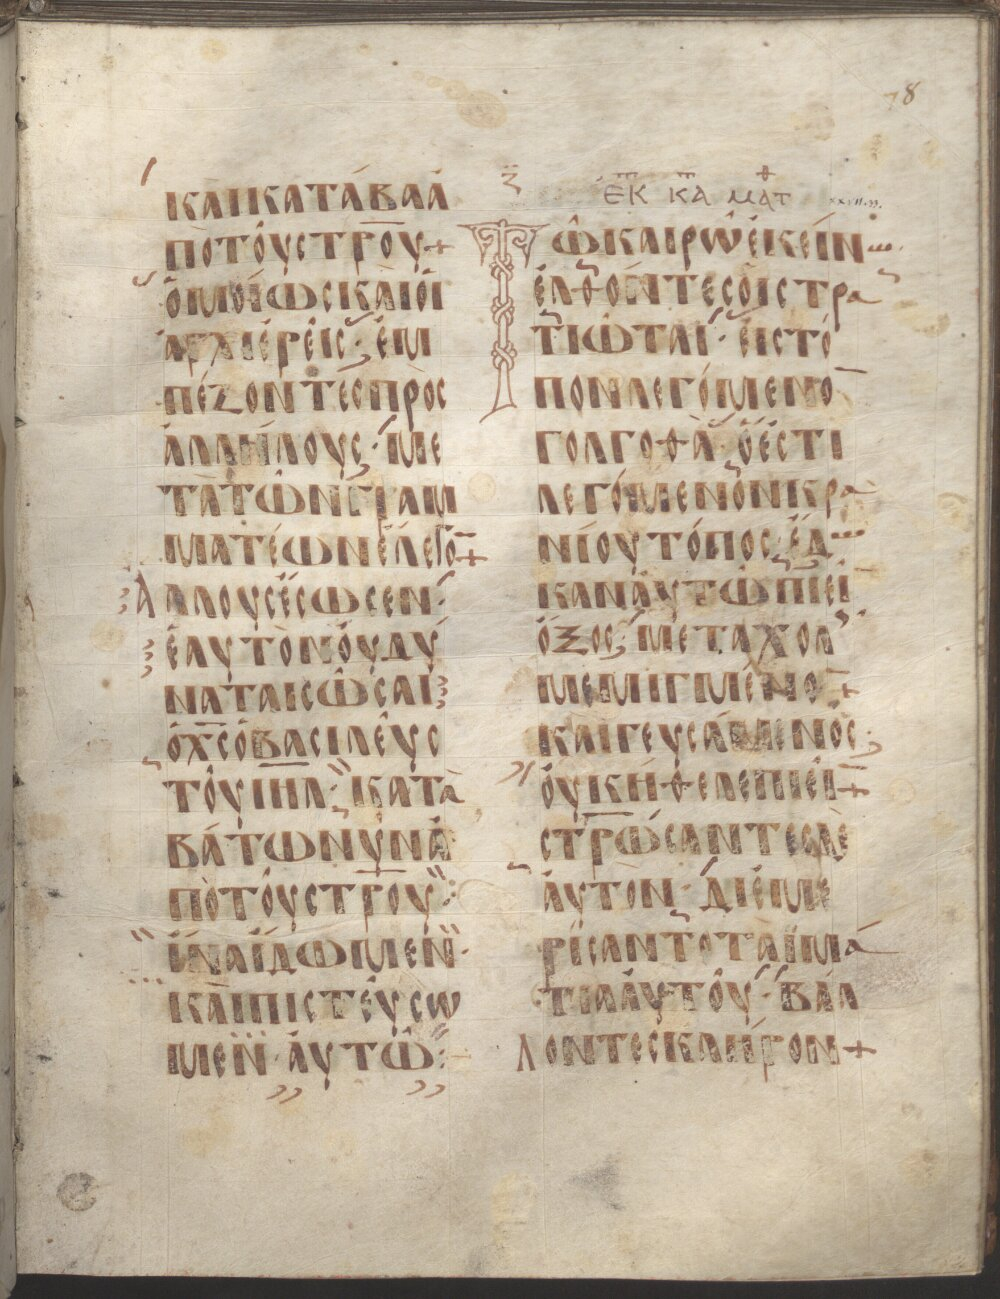 78
ΚΑΙ ΚΑΤΑΒΑ Ἀ
ΠΟ ΤΟΥ ΣΤΡΟΥ+
ὉΜΟΙΩΣ ΚΑΙ ΟΙ
ἈΡΧΙΕΡΕΙΣ· ἘΜ
ΠΕΖΟΝΤΕΣ ΠΡΟΣ
ἈΛΛΗΛΟΥΣ· ΜΕ
ΤΑ ΤΩΝ ΓΡΑΜ
ΜΑΤΕΩΝ ἘΛΕΓΟ+
ΑΛΛΟΥΣ ἘΣΩΣΕΝ·
ἘΑΥΤΟΝ ΟΥ ΔΥ
ΝΑΤΑΙ ΣΩΣΑΙ
Ὁ ΧΣ Ὁ ΒΑΣΙΛΕΥΣ
ΤΟΥ ΙΗΛ· ΚΑΤΑ
ΒΑΤΩ ΝΥΝ Ἀ
ΠΟ ΤΟΥ ΣΤΡΟΥ·
ἹΝΑ ΪΔΩΜΕΝ·
ΚΑΙ ΠΙΣΤΕΥΣΩ
ΜΕΝ ΑΥΤΩ:
ΕΚ ΚΑ ΜΑΤΘ
xxvii.33.
ΤΩ ΚΑΙΡΩ ἘΚΕΙΝ
ἘΛΘΟΝΤΕΣ ΟΙ ΣΤΡΑ
ΤΙΩΤΑΙ· ΕΙΣ ΤΟ
ΠΟΝ ΛΕΓΟΜΕΝΟ
ΓΟΛΓΟΘΑ· Ὁ ἘΣΤΙ
ΛΕΓΟΜΕΝΟΝ ΚΡΑ
ΝΙΟΥ ΤΟΠΟΣ· ἘΔ
ΚΑΝ ΑΥΤΩ ΠΙΕΙ
ὈΞΟΣ· ΜΕΤΑ ΧΟΛ
ΜΕΜΙΓΜΕΝΟ+
ΚΑΙ ΓΕΥΣΑΜΕΝΟΣ·
ΟΥΚ ΗΘΕΛΕ ΠΙΕΙ+
ΣΤΡΩΣΑΝΤΕΣ ΔΕ
ΑΥΤΟΝ· ΔΙΕΜΕ
ΡΙΣΑΝΤΟ ΤΑ ἹΜΑ
ΤΙΑ ΑΥΤΟΥ· ΒΑΛ
ΛΟΝΤΕΣ ΚΛΗΡΟΝ+